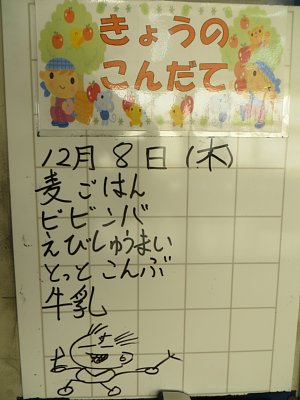 きょうの
こんだて
12月8日(木)
麦ごはん
ビビンバ
えびしゅうまい
とっとこんぶ
牛乳